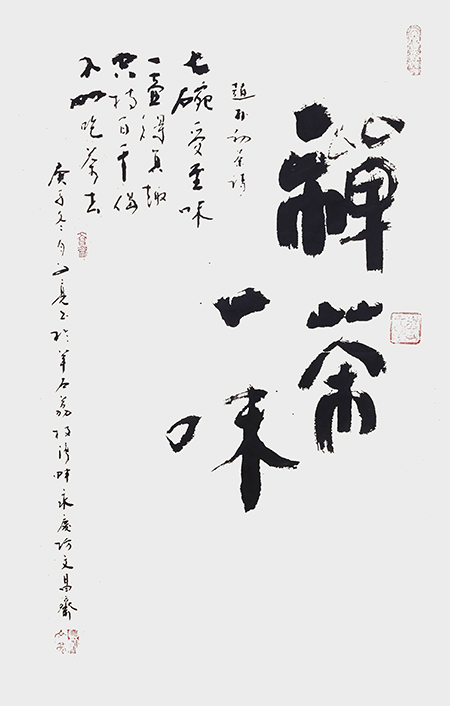 禪茶
一味
趙朴初茶詩
七碗受至味
一壺得真趣
空持百千偈
不如吃茶去
庚子冬月 亮书於羊石荔枝湾畔永慶坊文 齋